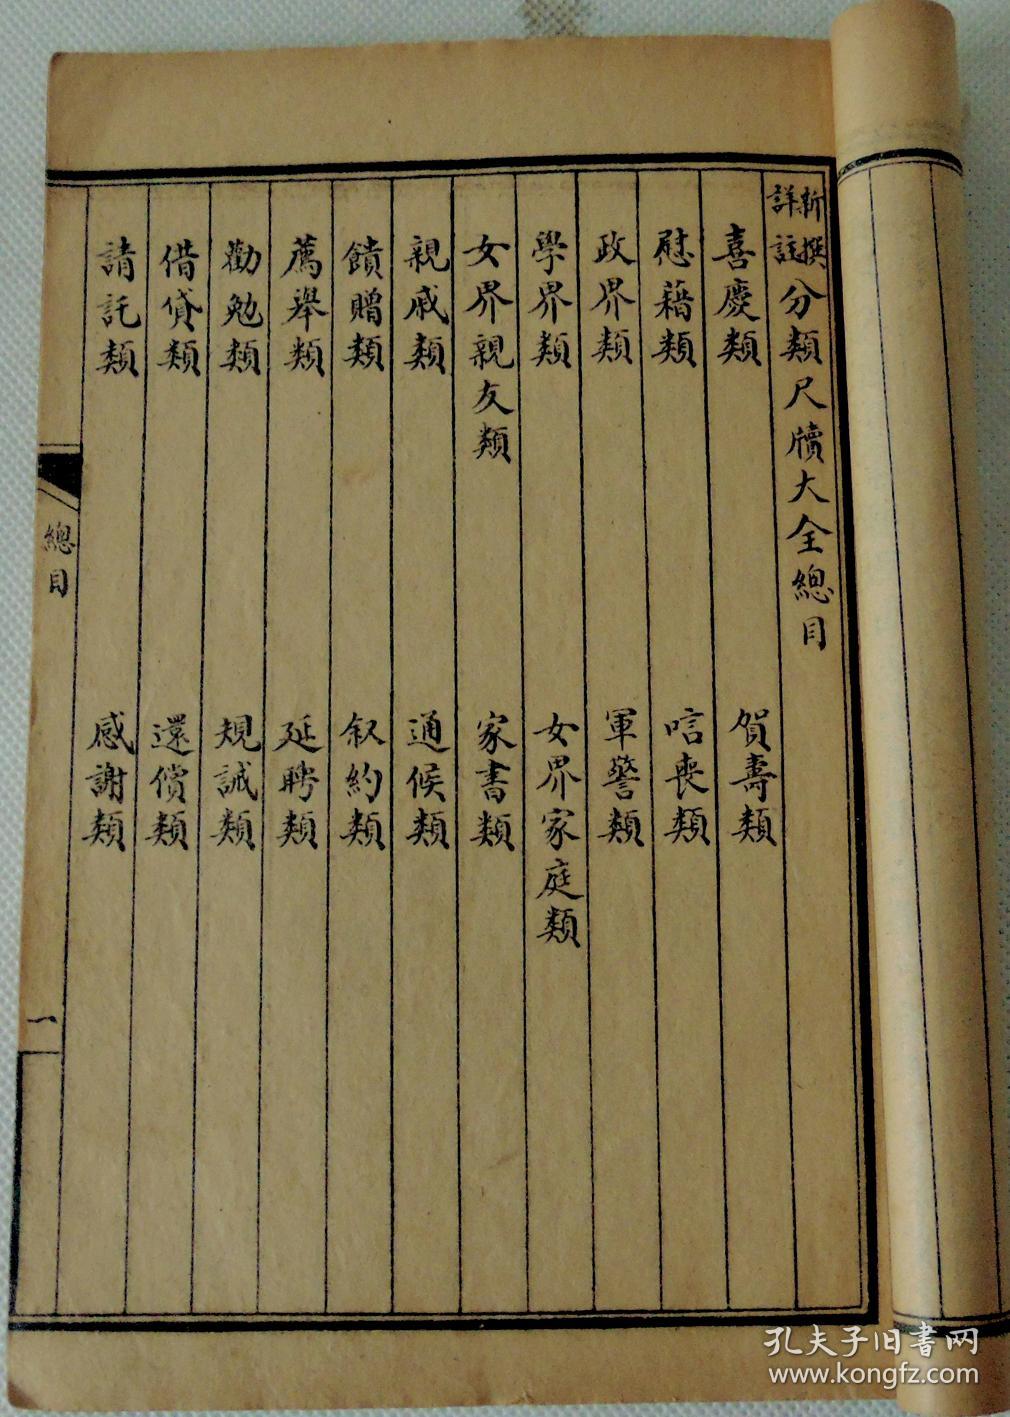 新撰詳註分類尺牘大全總目
喜慶類 賀壽類
慰藉類 唁喪類
政界類 軍警類
學界類 女界家庭類
女界親友類 家書類
親戚類 通候類
饋贈類 叙約類
薦舉類 延聘類
勸勉類 規誡類
借貸類 還償類
請託類 感謝類
總目
一
孔夫子旧書网
www.kongfz.com